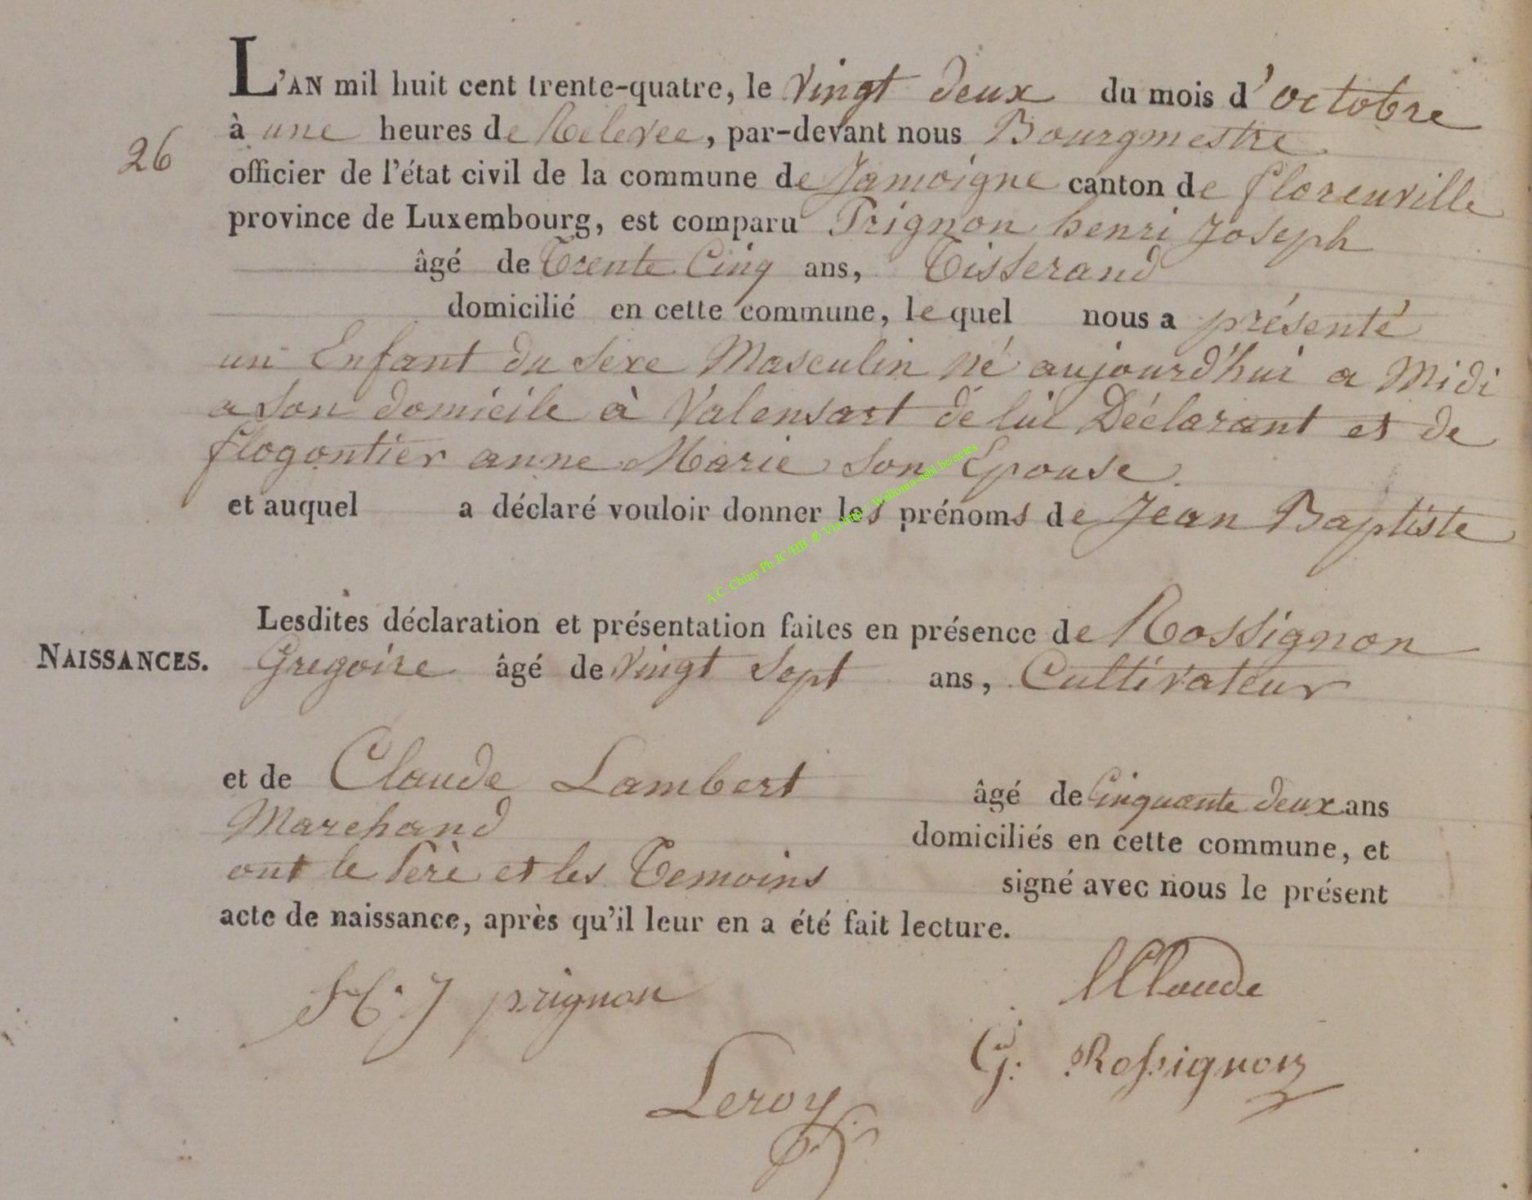 L'AN mil huit cent trente-quatre, le Vingt deux du mois d'octobre
à une heures de Relevee, par-devant nous Bourgmestre
26
officier de l'état civil de la commune de Jamoigne canton de florenville
province de Luxembourg, est comparu Prignon henri Joseph
âgé de Trente Cinq ans, Tisserand
domicilié en cette commune, lequel nous a présenté
un Enfant du sexe Masculin né aujourd'hui a Midi
a son domicile à Valensart de lui Déclarant et de
flogontier anne Marie son Epouse.
et auquel a déclaré vouloir donner les prénoms de Jean Baptiste
A.C. Chiny Ph.
Lesdites déclaration et présentation faites en présence de Rossignon
NAISSANCES.
Gregoire âgé de Vingt Sept ans, Cultivateur
et de Claude Lambert âgé de Cinquante deux ans
Marchand domiciliés en cette commune, et
ont le Père et les Temoins signé avec nous le présent
acte de naissance, après qu'il leur en a été fait lecture.
H. J prignon
LClaude
G. Rossignon
Leroy